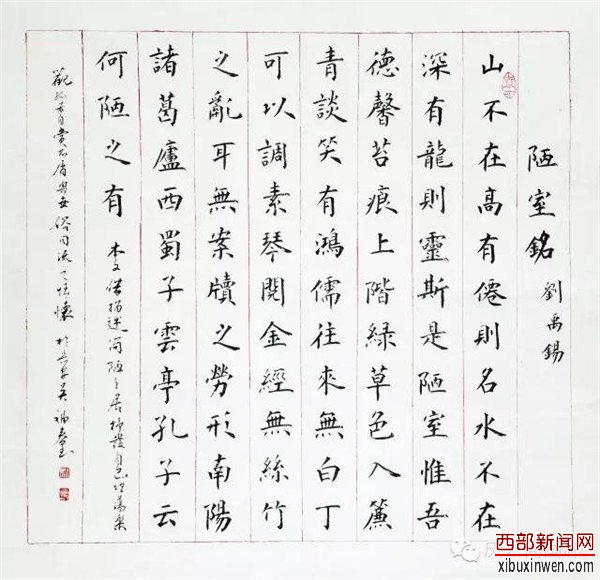 陋室銘 劉禹錫
山不在高有僊則名水不在
深有龍則靈斯是陋室惟吾
德馨苔痕上階綠草色入簾
青談笑有鴻儒往來無白丁
可以調素琴閱金經無絲竹
之亂耳無案牘之勞形南陽
諸葛廬西蜀子雲亭孔子云
何陋之有 本文借描述简陋之居抒發自己
自赏不屑與世俗同流之情懷
西部新闻网
xibuxinwen.com